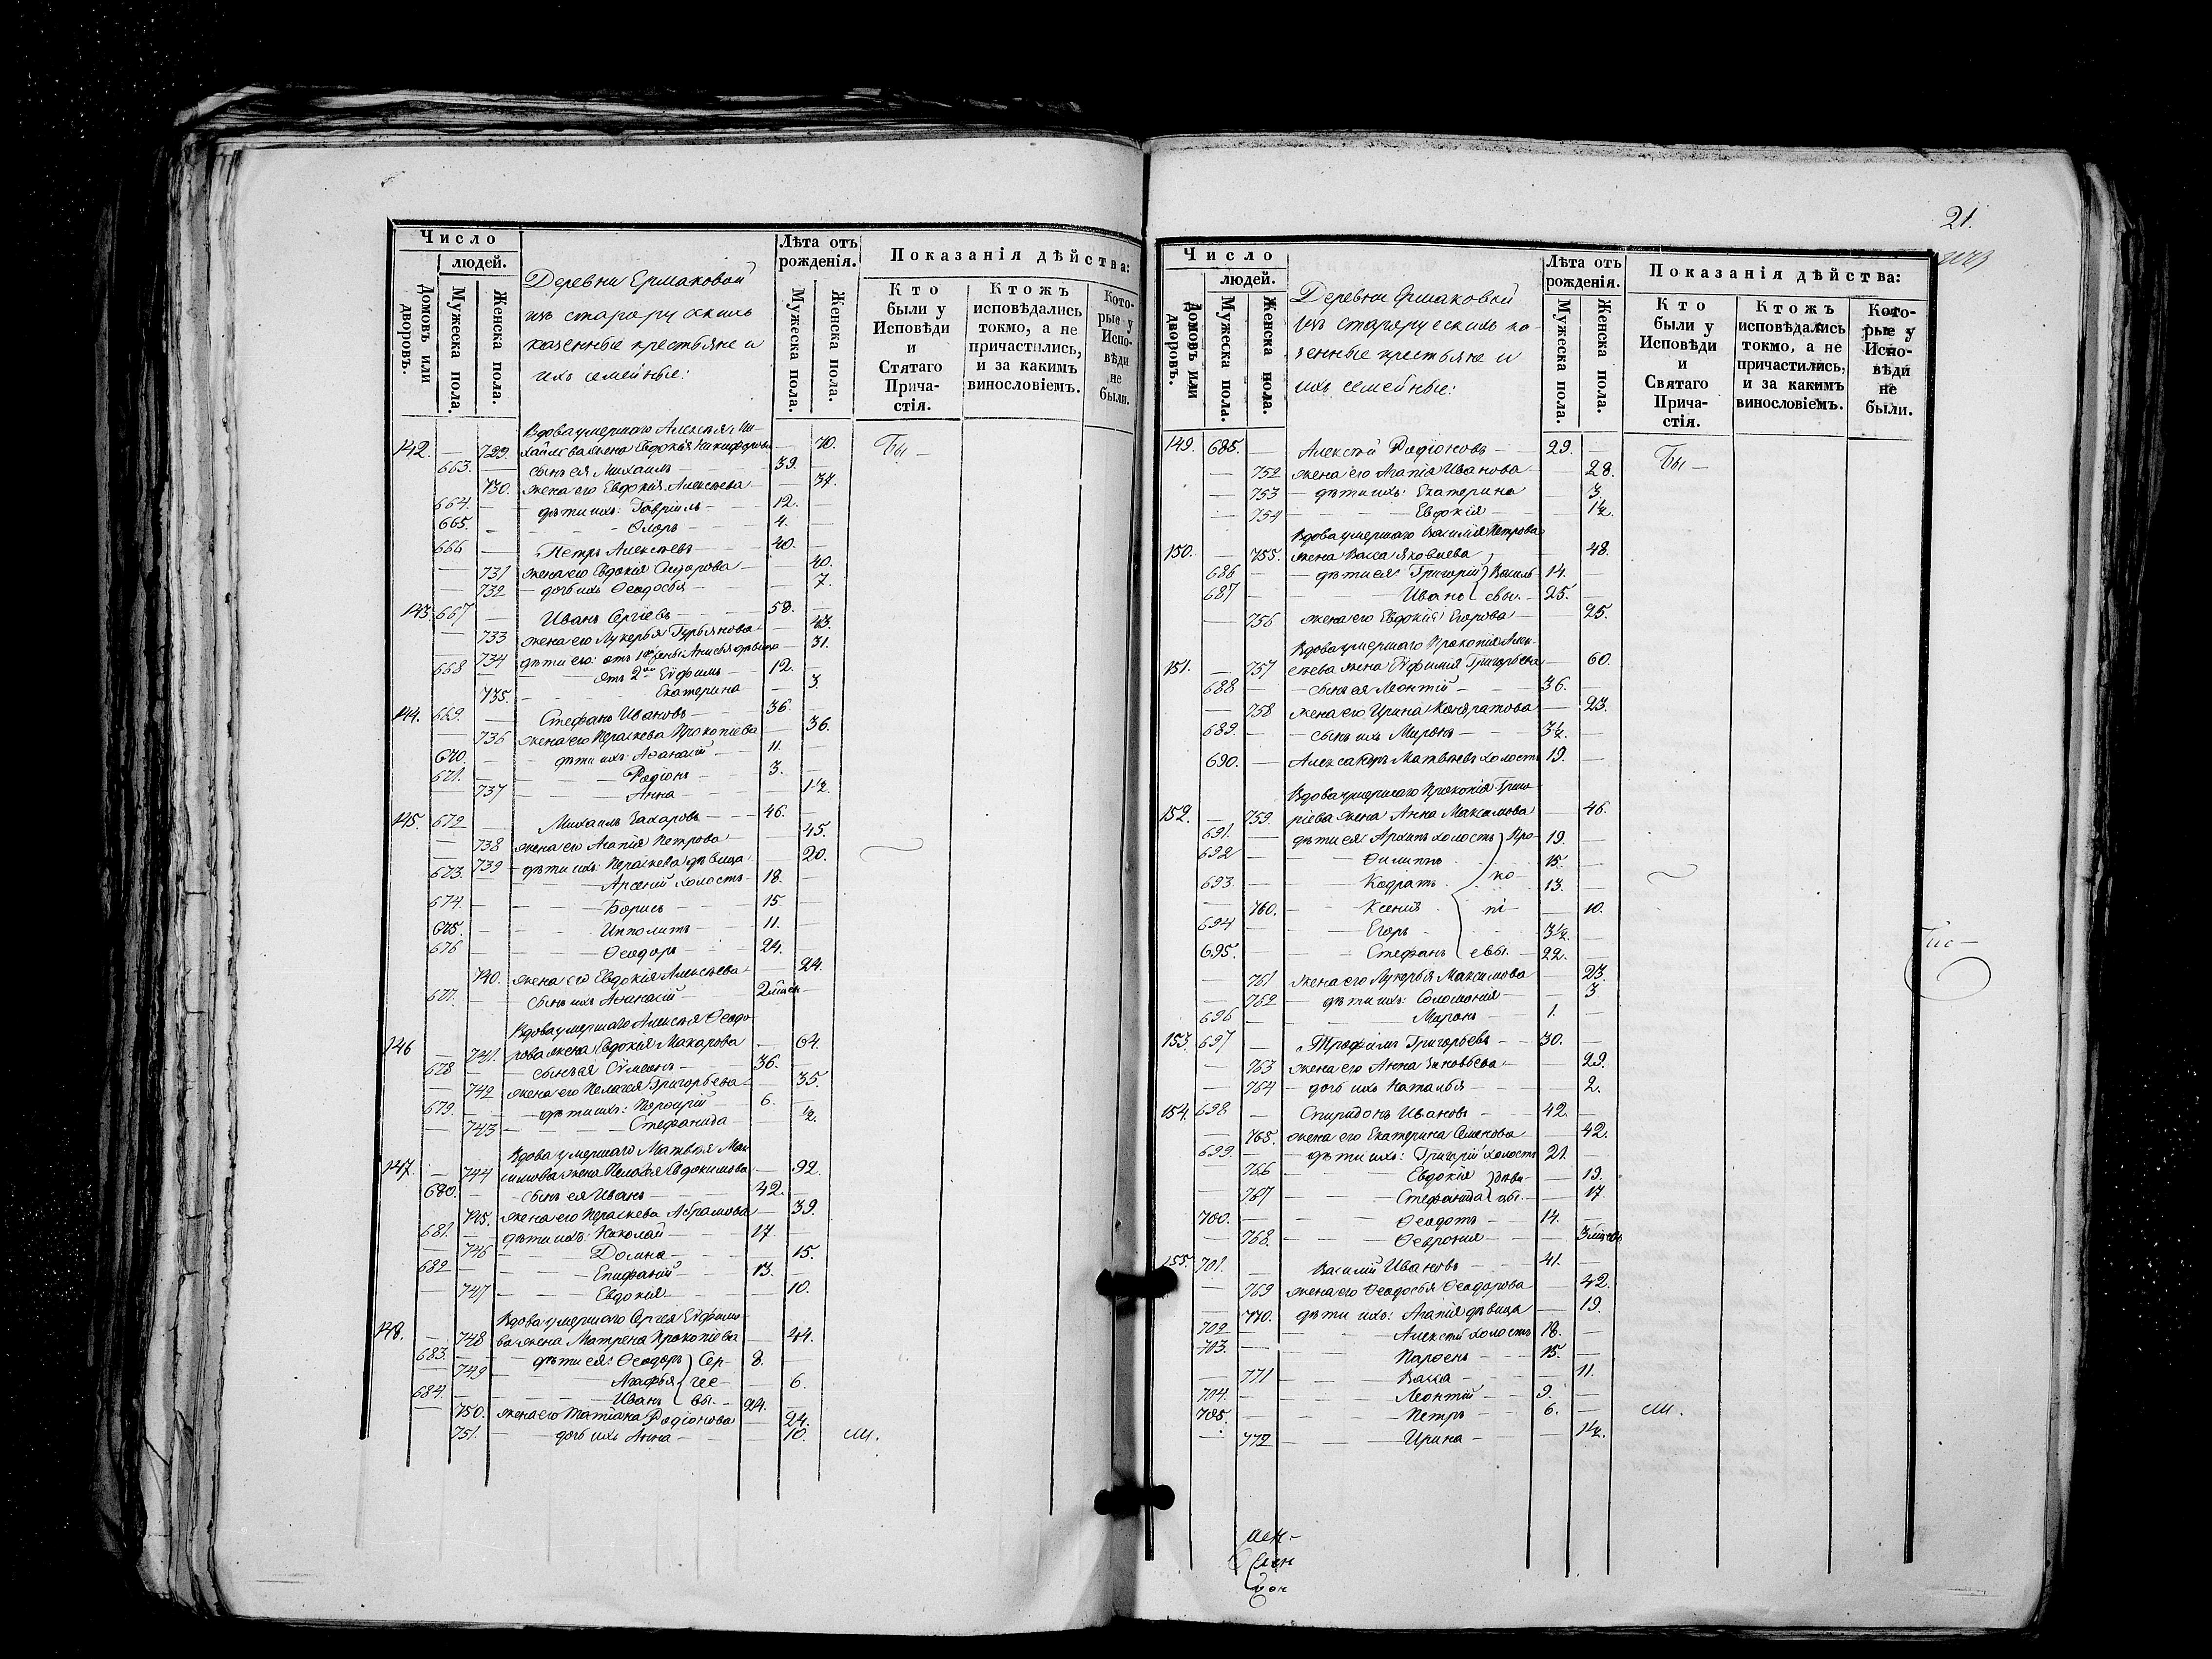 Число
людей.
Домовъ или дворовъ.
Мужеска пола.
Женска пола.
Деревни Ермаковой
изъ старорускихъ
казенные крестьяне и
ихъ семейные:
Лѣта отъ рожденія.
Мужеска пола.
Женска пола.
Показанія дѣйства:
Кто были у Исповѣди и Стятаго Прича-стія.
Ктожъ исповѣдались токмо, а не причастились, и за какимъ винословіемъ.
Кото-рые у Испо-вѣди не были.
Вдова умершаго Алексѣя Ми-
142. — 729. хайлова жена Евдокія Никифорова — 70. Бы —
663. — сынъ ея Михаилъ — 39. —
— 730. жена его Евдокія Алексѣева — 37.
664. — дѣти ихъ: Гавріилъ — 12. —
665. — Флоръ — 4. —
666 — Петръ Алексѣевъ — 40. —
— 731 жена его Евдокія Сидорова — 40.
— 732 — дочь ихъ Ѳеодосья — 7.
143. 667 — Иванъ Сергіевъ — 58. —
— 733 жена его Лукерья Гурьянова — 43.
— 734 дѣти его: отъ 1ой жены Анисья дѣвица — 31.
668 — отъ 2ой Еѵфимъ — 12. —
— 735. — Екатерина — 3.
144. 669. — Стефанъ Ивановъ — 36 —
— 736 жена его Пераскева Прокопіева — 36.
670. — дѣти ихъ: Афанасій — 11. —
671. — Родіонъ — 3. —
— 737 — Анна — 1½.
145. 672 — Михаилъ Захаровъ — 46. —
— 738 жена его Агапія Петрова — 45.
— 739 — дѣти ихъ: Пераскева дѣвица — 20.
673. — Арсеній холостъ — 18. —
674. — Борисъ — 15. —
675. — Ипполитъ — 11. —
676 — Ѳеодоръ — 24. —
— 740. жена его Евдокія Алексѣева — 24.
677. — сынъ ихъ Афанасій — 2 мѣсяц —
Вдова умершаго Алексѣя Ѳеодо-
146 — 741. рова жена Евдокія Макарова — 64.
678 — сынъ ея Сѵмеонъ — 36. —
— 742 жена его Пелагея Григорьева — 35.
679. — дѣти ихъ: Порфирій — 6. —
— 743 — Стефанида — ½.
Вдова умершаго Матвѣя Мак-
147. — 744 симова жена Пелагея Евдокимова — 92.
680. — сынъ ея Иванъ — 42. —
— 745. жена его Пераскева Абрамова — 39.
681. — дѣти ихъ: Николай — 17. —
— 746 — Домна — 15.
682 — Епифаній — 13. —
— 747 — Евдокія — 10.
Вдова умершаго Сергея Еѵфимо-
148. — 748 ва жена Матрена Прокопіева — 44.
683. — дѣти ея: Ѳеодоръ } Сер- 8. —
— 749 — Агафья { гее- — 6.
684. — Иванъ { вы. — 24. —
— 750. жена его Татіана Родіонова — 24.
— 751. — дочь ихъ Анна — 10. ли.
21.
Число
людей.
Домовъ или дворовъ.
Мужеска пола.
Женска пола.
Деревни Ермаковой
изъ старорусскихъ ка-
зенные крестьяне и
ихъ семейные:
Лѣта отъ рожденія.
Мужеска пола.
Женска пола.
Показанія дѣйства:
Кто были у Исповѣди и Святаго Прича-стія.
Ктожъ исповѣдались токмо, а не причастились, и за какимъ винословіемъ.
Кото-рые у Испо-вѣди не были.
149. 685. — Алексѣй Родіоновъ — 29. — Бы —
— 752 жена его Агапія Иванова — 28.
— 753 — дѣти ихъ: Екатерина — 3.
— 754 — Евдокія — 1½.
Вдова умершаго Василія Петрова
150. — 755. жена Васса Яковлева — 48.
686 — дѣти ея: Григорій } Василь- 14. —
687 — Иванъ { евы. — 25. —
— 756 жена его Евдокія Егорова — 25.
Вдова умершаго Прокопія Алек-
151. — 757 сѣева жена Еѵфимія Григорьева — 60.
688 — сынъ ея Леонтій — 36. —
— 758 жена его Ирина Кондратова — 23.
689. — сынъ ихъ Миронъ — 3½. —
690. — Александръ Матвѣевъ холостъ 19. —
Вдова умершаго Прокопія Григо-
152. — 759. ріева жена Анна Максимова — 46.
691. — дѣти ея: Архипъ холостъ } Про- 19. —
692 — Филиппъ — 15. —
693. — Кодратъ . ко 13. —
— 760. — Ксенія . пі- — 10.
694 — Егоръ — 3½. —
695. — Стефанъ { евы. — 22. —
— 761 жена его Лукерья Максимова — 23.
— 762 — дѣти ихъ: Соломонія — 3
696 — Миронъ — 1. —
153. 697 — Трофимъ Григорьевъ — 30. —
— 763 жена его Анна Зиновьева — 29.
— 764 — дочь ихъ Наталья — 2.
154. 698 — Спиридонъ Ивановъ — 42. —
— 765. жена его Екатерина Семенова — 42.
699. — дѣти ихъ: Григорій холостъ 21. —
766 — Евдокія } дѣви- — 19.
— 767 — Стефанида { цы. — 17.
700. — Ѳеодотъ — 14. —
— 768. — Ѳеврония —
155. 701. — Василій Ивановъ — 41. —
— 769 жена его Ѳеодосья Ѳеодорова — 42.
— 770. дѣти ихъ: Агапія дѣвица — 19.
702 — Алексѣй холостъ 18. —
703. — Парѳенъ — 15. —
— 771 — Васса — 11.
704. — Леонтій — 9. —
705. — Петръ — 6. — ли.
— 772 — Ирина — 1½.